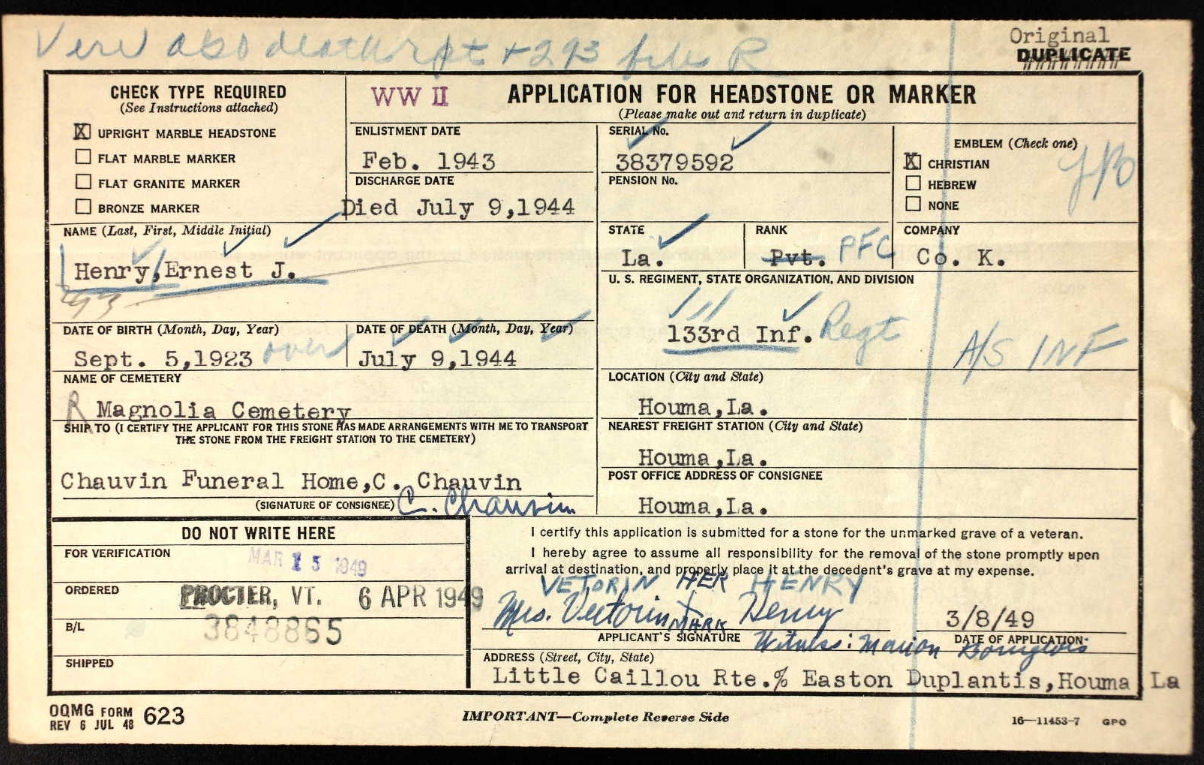 Veri also death rpt + 293 file R
Original
DUPLICATE
CHECK TYPE REQUIRED
(See Instructions attached)
X UPRIGHT MARBLE HEADSTONE
FLAT MARBLE MARKER
FLAT GRANITE MARKER
BRONZE MARKER
WW II
APPLICATION FOR HEADSTONE OR MARKER
(Please make out and return in duplicate)
ENLISTMENT DATE
Feb. 1943
DISCHARGE DATE
Died July 9,1944
SERIAL No.
38379592
PENSION No.
EMBLEM (Check one)
X CHRISTIAN
HEBREW
NONE
NAME (Last, First, Middle Initial)
Henry,Ernest J.
STATE
La.
RANK
Pvt. PFC
COMPANY
Co. K.
U. S. REGIMENT, STATE ORGANIZATION, AND DIVISION
133rd Inf. Regt
A/S INF
DATE OF BIRTH (Month, Day, Year)
Sept. 5,1923 over
DATE OF DEATH (Month, Day, Year)
July 9,1944
NAME OF CEMETERY
R Magnolia Cemetery
LOCATION (City and State)
Houma,La.
SHIP TO (I CERTIFY THE APPLICANT FOR THIS STONE HAS MADE ARRANGEMENTS WITH ME TO TRANSPORT
THE STONE FROM THE FREIGHT STATION TO THE CEMETERY)
Chauvin Funeral Home,C. Chauvin
(SIGNATURE OF CONSIGNEE) C. Chauvin
NEAREST FREIGHT STATION (City and State)
Houma,La.
POST OFFICE ADDRESS OF CONSIGNEE
Houma,La.
DO NOT WRITE HERE
FOR VERIFICATION
MAR 15 1949
ORDERED
PROCTER, VT. 6 APR 1949
B/L
3848865
SHIPPED
I certify this application is submitted for a stone for the unmarked grave of a veteran.
I hereby agree to assume all responsibility for the removal of the stone promptly upon
arrival at destination, and properly place it at the decedent's grave at my expense.
VETORIN HER HENRY
Mrs. Vectorin X Henry
MARK
3/8/49
APPLICANT'S SIGNATURE
DATE OF APPLICATION
Witness: Marion Bourgeois
ADDRESS (Street, City, State)
Little Caillou Rte.% Easton Duplantis,Houma La
OQMG FORM
REV 6 JUL 48 623
IMPORTANT—Complete Reverse Side
16—11453-7 GPO